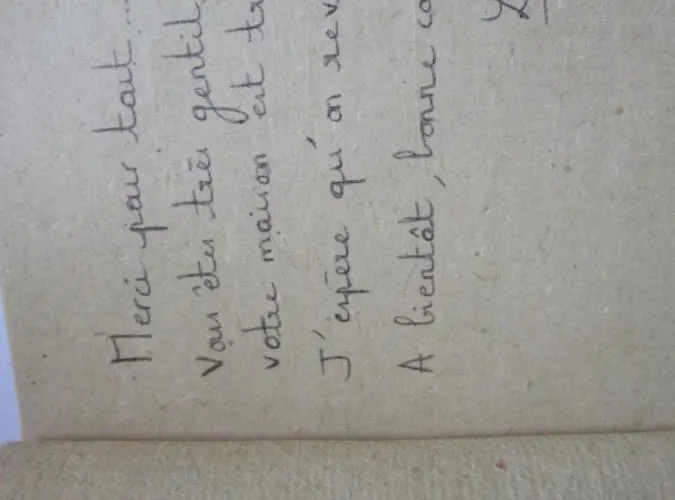 Merci pour tout...
Vous êtes très gentil
votre maison est
J'espère qu'on
A bientôt, bonne